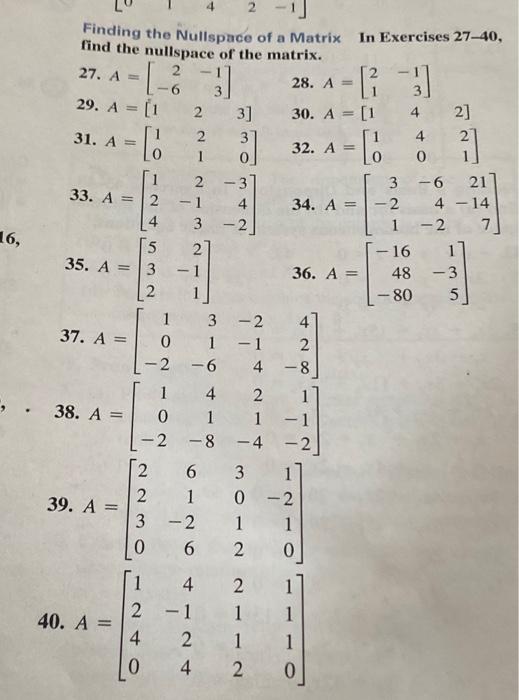 0 1 4 2 -1]
Finding the Nullspace of a Matrix In Exercises 27–40,
find the nullspace of the matrix.
27. A = [2 -1
-6 3]
28. A = [2 -1
1 3]
29. A = [1 2 3]
30. A = [1 4 2]
31. A = [1 2 3
0 1 0]
32. A = [1 4 2
0 0 1]
33. A = [1 2 -3
2 -1 4
4 3 -2]
34. A = [3 -6 21
-2 4 -14
1 -2 7]
16,
35. A = [5 2
3 -1
2 1]
36. A = [-16 1
48 -3
-80 5]
37. A = [1 3 -2 4
0 1 -1 2
-2 -6 4 -8]
, .
38. A = [1 4 2 1
0 1 1 -1
-2 -8 -4 -2]
39. A = [2 6 3 1
2 1 0 -2
3 -2 1 1
0 6 2 0]
40. A = [1 4 2 1
2 -1 1 1
4 2 1 1
0 4 2 0]